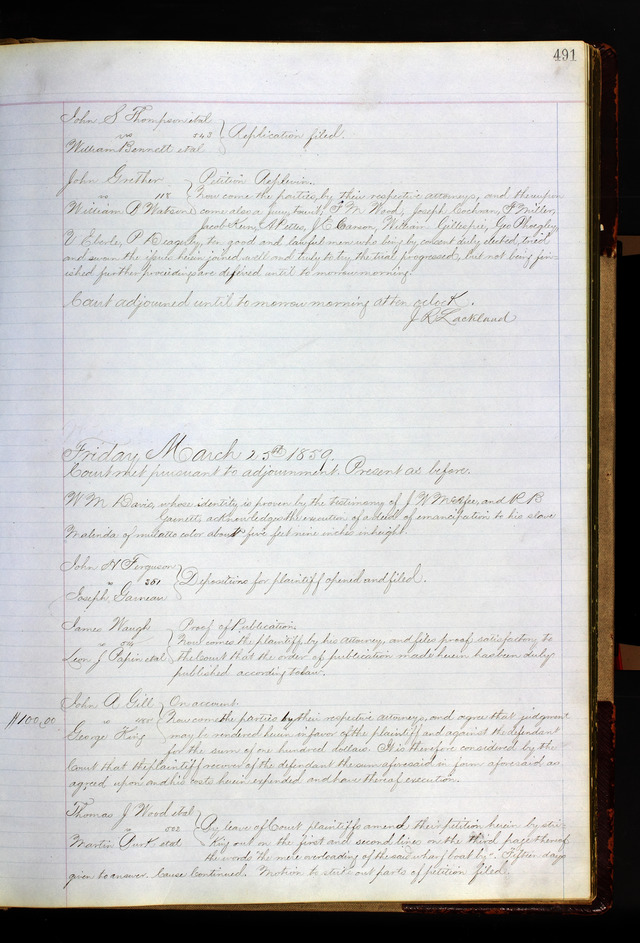 491
John S Thompson et al
vs 543 } Replication filed.
William Bennett et al
John Grether } Petition Replevin.
vs 118 Now come the parties by their respective attorneys, and thereupon
William R Watson come also a jury, towit, F. M. Wood, Joseph Cochran, F Miller,
Jacob Keim, A Yettes, J E Carson, William Gillespie, Geo Pheegley,
V Eberle, P Deagerly, ten good and lawful men who being by consent duly elected, tried
and sworn the issue herein joined well and truly to try, the trial progressed, but not being fin-
ished further proceedings are deferred until to morrow morning.
Court adjourned until to morrow morning at ten oclock.
J R Lackland
Friday March 25th 1859.
Court met pursuant to adjournment. Present as before.
W M Davis, whose identity is proven by the testimony of J W McAfee, and R B
Garnett, acknowledges the execution of a deed of emancipation to his slave
Malenda, of mulatto color about five feet nine inches in height.
John H Ferguson
vs 361 } Depositions for plaintiff opened and filed.
Joseph Garneau
James Waugh } Proof of Publication.
vs 54 Now comes the plaintiff by his attorney, and files proof satisfactory to
Leon J Papin et al the Court that the order of publication made herein has been duly
published according to law.
John A Gill } On account.
$100,00 vs Now come the parties by their respective attorneys, and agree that judgment
George King may be rendered herein in favor of the plaintiff and against the defendant
for the sum of one hundred dollars. It is therefore considered by the
Court that the plaintiff recover of the defendant the sum aforesaid in form aforesaid as
agreed upon and his costs herein expended and have thereof execution.
Thomas J Wood et al
vs 502 } By leave of Court plaintiffs amend their petition herein by stri-
Martin Turk et al king out on the first and second lines on the third page thereof
the words "the mere overloading of the said wharf boat by". Fifteen days
given to answer. Cause continued. Motion to strike out parts of petition filed.